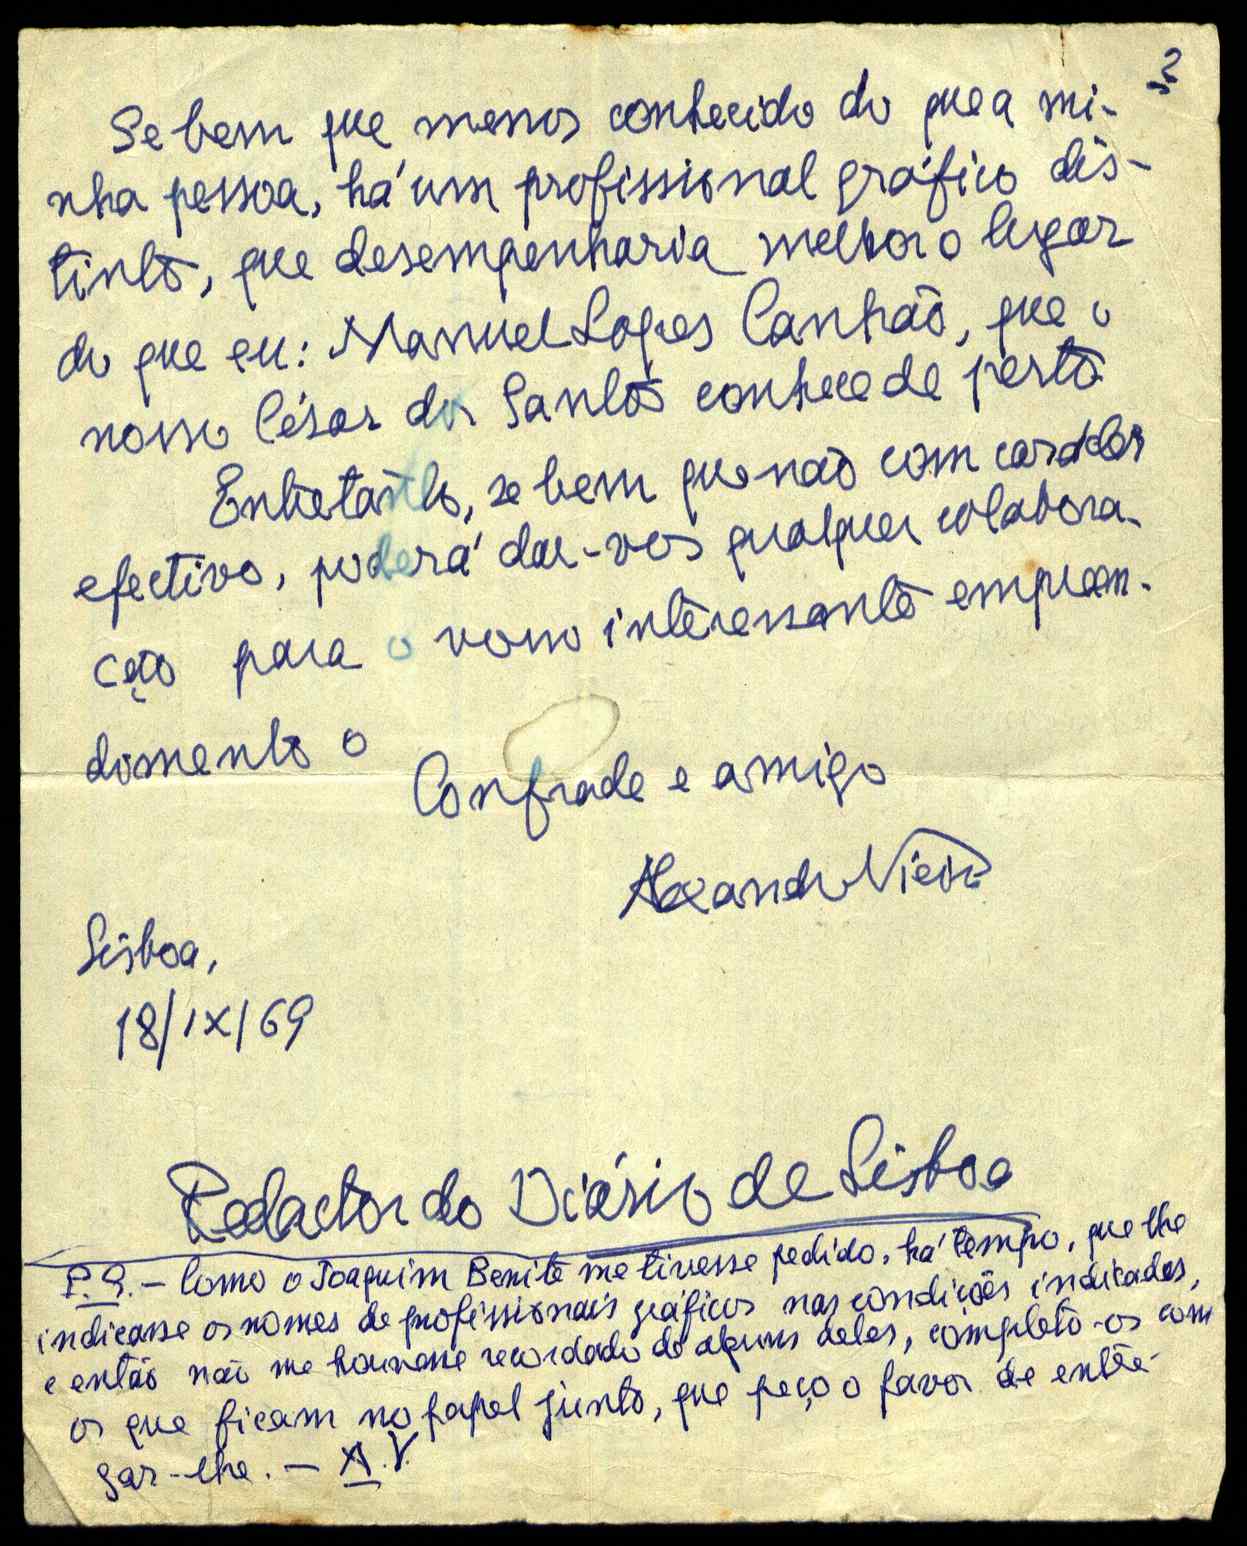 2
Se bem que menos conhecido do que a mi-
nha pessoa, há um profissional gráfico dis-
tinto, que desempenharia melhor o lugar
do que eu: Manuel Lopes Canhão, que o
nosso César dos Santos conhece de perto.
Entretanto, se bem que não com carácter
efectivo, poderá dar-vos qualquer colabora-
ção para o vosso interessante empreen-
dimento o
Confrade e amigo
Alexandre Vieira
Lisboa,
18/IX/69
Redactor do Diário de Lisboa
P.S. – Como o Joaquim Benite me tivesse pedido, há tempo, que lhe
indicasse os nomes de profissionais gráficos nas condições indicadas,
e então não me houvesse recordado de alguns deles, completo-os com
os que ficam no papel junto, que peço o favor de entre-
gar-lhe. – A.V.